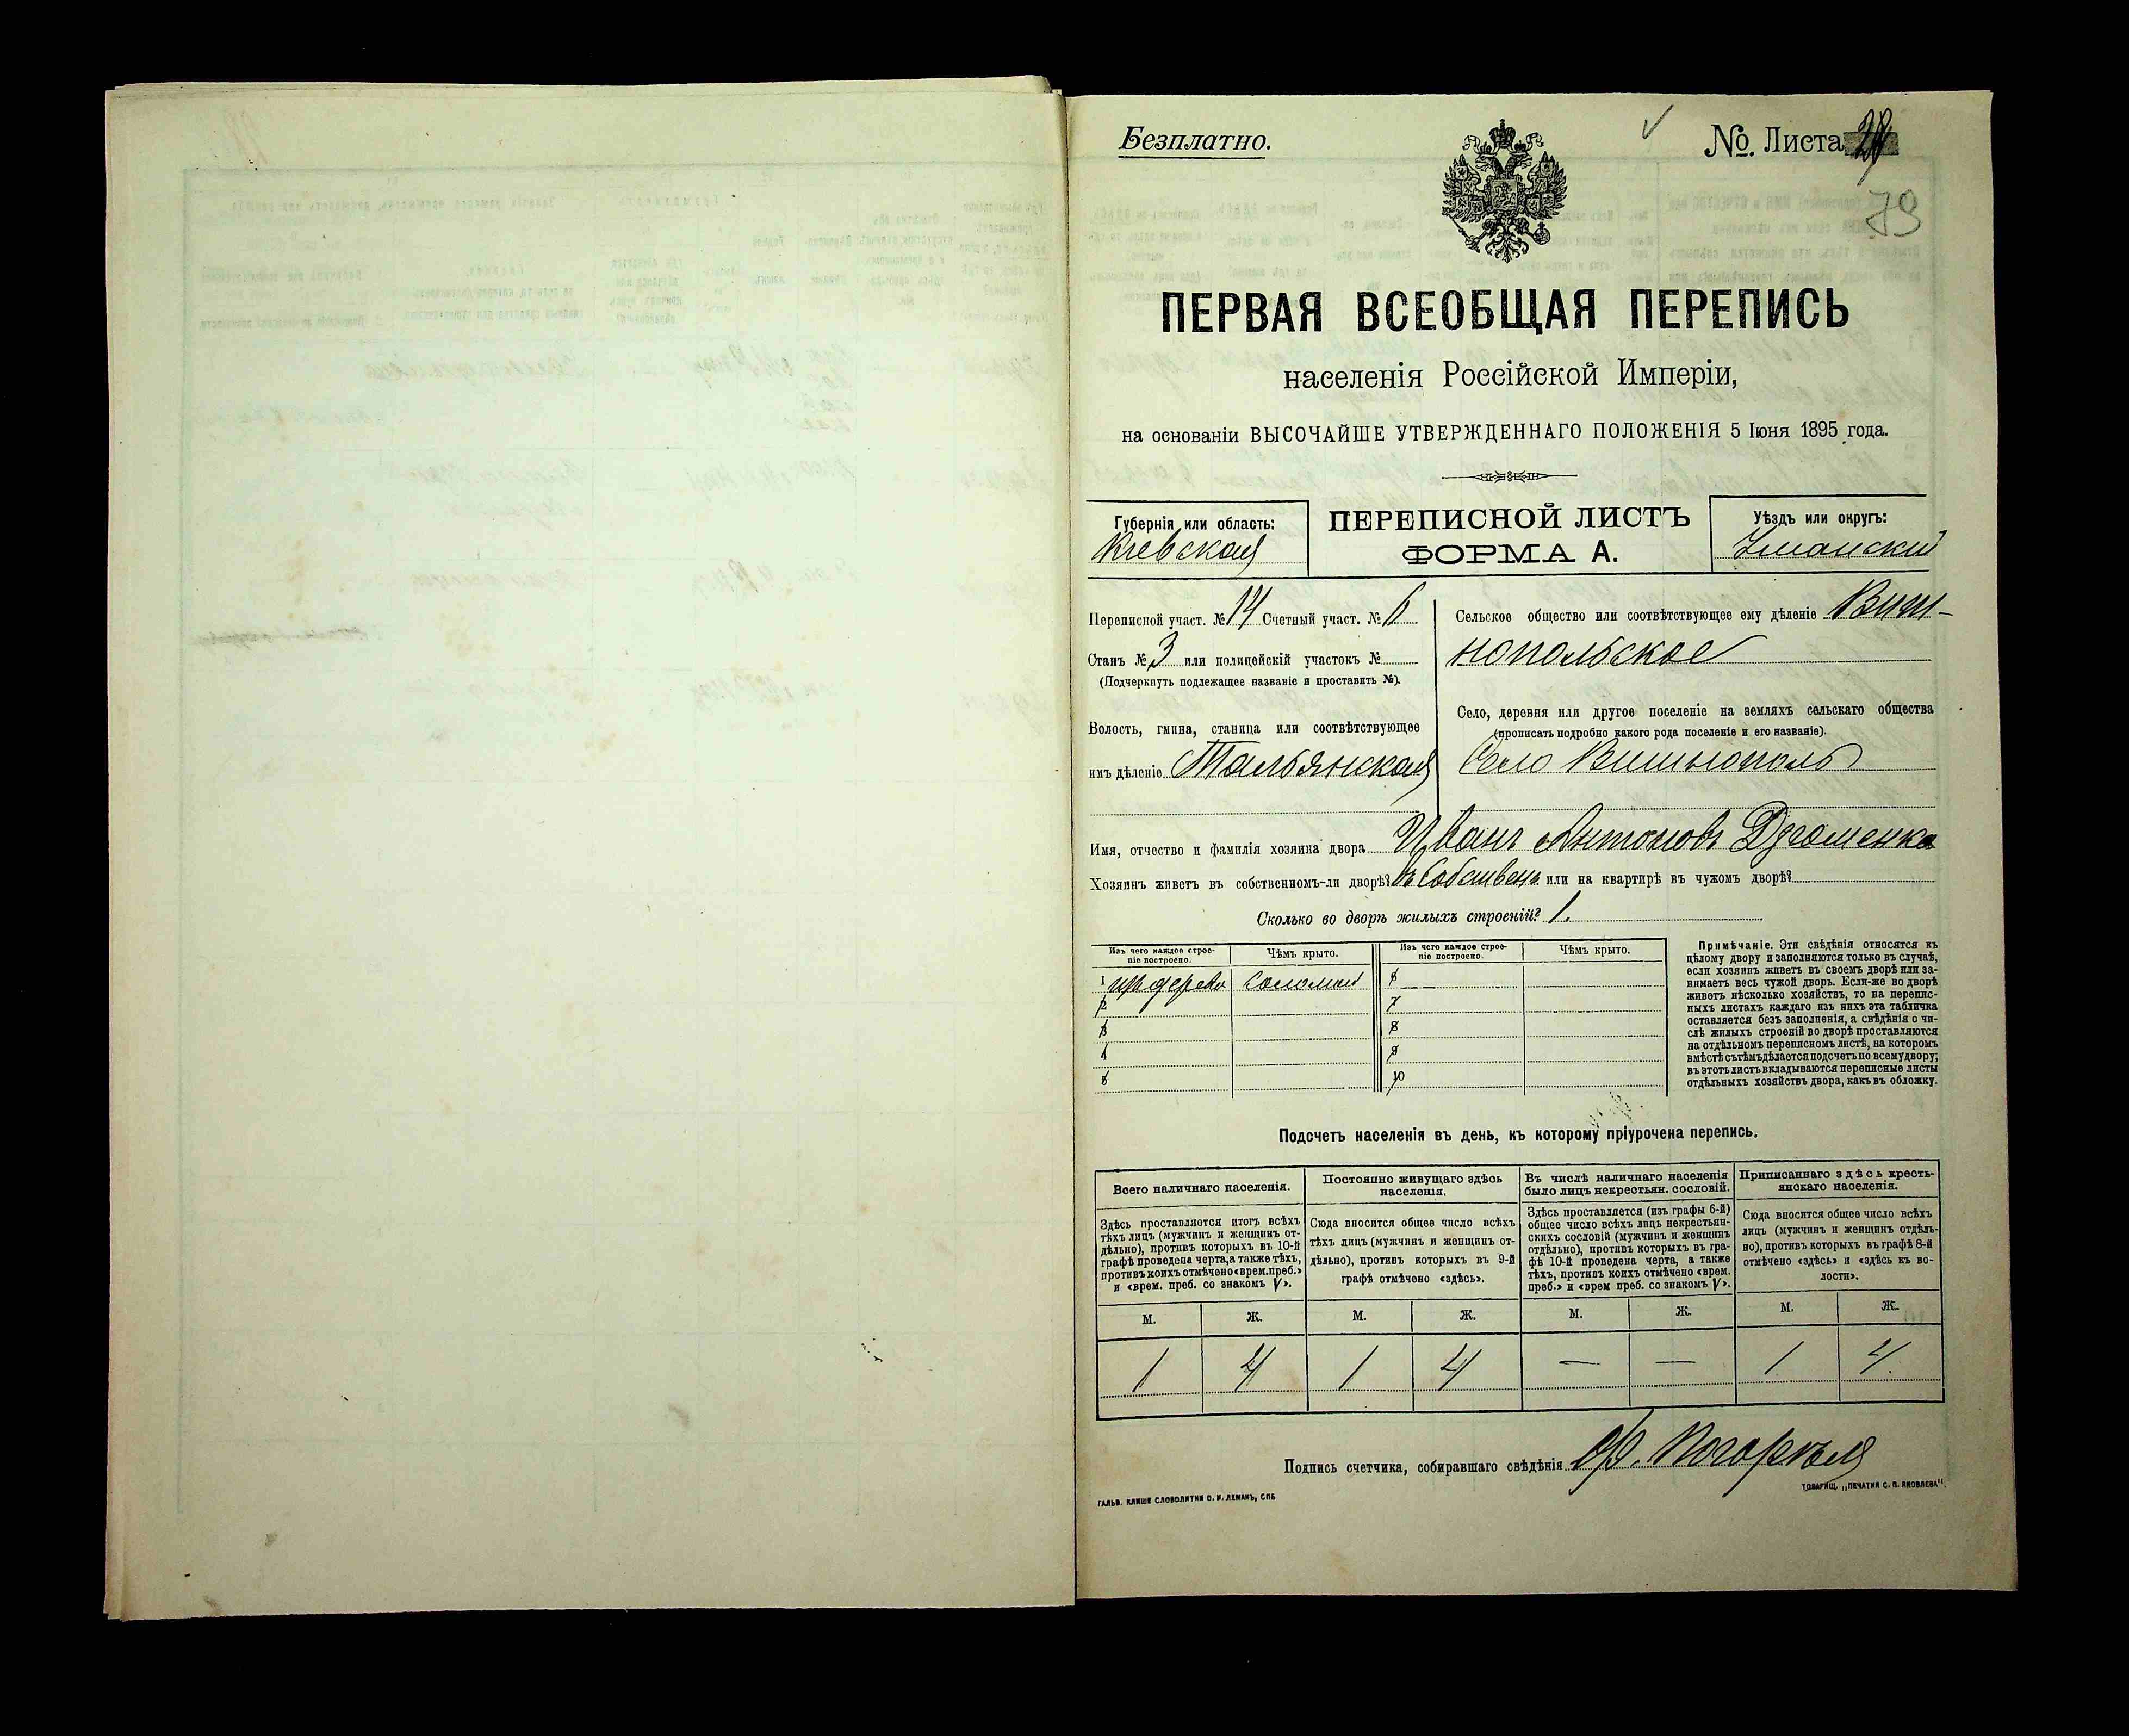 Безплатно.
№. Листа
79
ПЕРВАЯ ВСЕОБЩАЯ ПЕРЕПИСЬ
населенія Россійской Имперіи,
на основаніи ВЫСОЧАЙШЕ УТВЕРЖДЕННАГО ПОЛОЖЕНІЯ 5 Іюня 1895 года.
Губернія или область:
Кіевская
ПЕРЕПИСНОЙ ЛИСТЪ
ФОРМА А.
Уѣздъ или округъ:
Уманскій
Переписной участ. № 14 Счетный участ. № 6
Станъ № 3 или полицейскій участокъ №
(Подчеркнуть подлежащее названіе и проставить №).
Волость, гмина, станица или соотвѣтствующее
имъ дѣленіе Тальянская
Сельское общество или соотвѣтствующее ему дѣленіе Виш-
нопольское
Село, деревня или другое поселеніе на земляхъ сельскаго общества
(прописать подробно какого рода поселеніе и его названіе).
Село Вишнополь
Имя, отчество и фамилія хозяина двора Иванъ Антоновъ
Хозяинъ живетъ въ собственномъ-ли дворѣ? въ собствен. или на квартирѣ въ чужомъ дворѣ?
Сколько во дворѣ жилыхъ строеній? 1.
Изъ чего каждое строе-
ніе построено.
Чѣмъ крыто.
Изъ чего каждое строе-
ніе построено.
Чѣмъ крыто.
1 изъ дерева соломой 6
2 7
3 8
4 9
5 10
Примѣчаніе. Эти свѣдѣнія относятся къ
цѣлому двору и заполняются только въ случаѣ,
если хозяинъ живетъ въ своемъ дворѣ или за-
нимаетъ весь чужой дворъ. Если-же во дворѣ
живетъ нѣсколько хозяйствъ, то на перепис-
ныхъ листахъ каждаго изъ нихъ эта табличка
оставляется безъ заполненія, а свѣдѣнія о чи-
слѣ жилыхъ строеній во дворѣ проставляются
на отдѣльномъ переписномъ листѣ, на которомъ
вмѣстѣ съ тѣмъ дѣлается подсчетъ по всему двору;
въ этотъ листъ вкладываются переписные листы
отдѣльныхъ хозяйствъ двора, какъ въ обложку.
Подсчетъ населенія въ день, къ которому пріурочена перепись.
Всего наличнаго населенія.
Здѣсь проставляется итогъ всѣхъ
тѣхъ лицъ (мужчинъ и женщинъ от-
дѣльно), противъ которыхъ въ 10-й
графѣ проведена черта, а также тѣхъ,
противъ коихъ отмѣчено «врем. преб.»
и «врем. преб. со знакомъ V».
Постоянно живущаго здѣсь
населенія.
Сюда вносится общее число всѣхъ
тѣхъ лицъ (мужчинъ и женщинъ от-
дѣльно), противъ которыхъ въ 9-й
графѣ отмѣчено «здѣсь».
Въ числѣ наличнаго населенія
было лицъ некрестьян. сословій.
Здѣсь проставляется (изъ графы 6-й)
общее число всѣхъ лицъ некрестьян-
скихъ сословій (мужчинъ и женщинъ
отдѣльно), противъ которыхъ въ гра-
фѣ 10-й проведена черта, а также
тѣхъ, противъ коихъ отмѣчено «врем.
преб.» и «врем преб. со знакомъ V».
Приписаннаго здѣсь кресть-
янскаго населенія.
Сюда вносится общее число всѣхъ
лицъ (мужчинъ и женщинъ отдѣль-
но), противъ которыхъ въ графѣ 8-й
отмѣчено «здѣсь» и «здѣсь къ во-
лости».
М. Ж. М. Ж. М. Ж. М. Ж.
1 4 1 4 — — 1 4
Подпись счетчика, собиравшаго свѣдѣнія
ГАЛЬВ. КЛИШЕ СЛОВОЛИТНИ О. И. ЛЕМАНЪ, СПБ
ТОВАРИЩ. „ПЕЧАТНЯ С. П. ЯКОВЛЕВА".